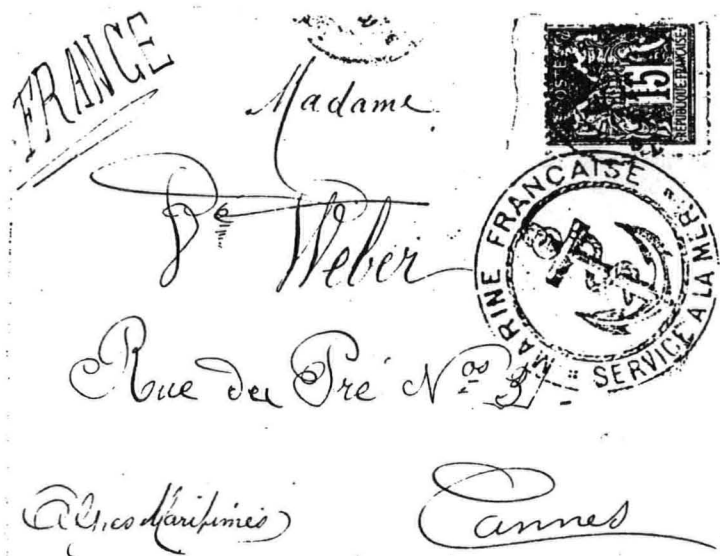 FRANCE
Madame
Vve Weber
Rue du Pré Nos 3
Alpes Maritimes
Cannes
POSTES
15
REPUBLIQUE FRANCAISE
MARINE FRANCAISE
SERVICE A LA MER